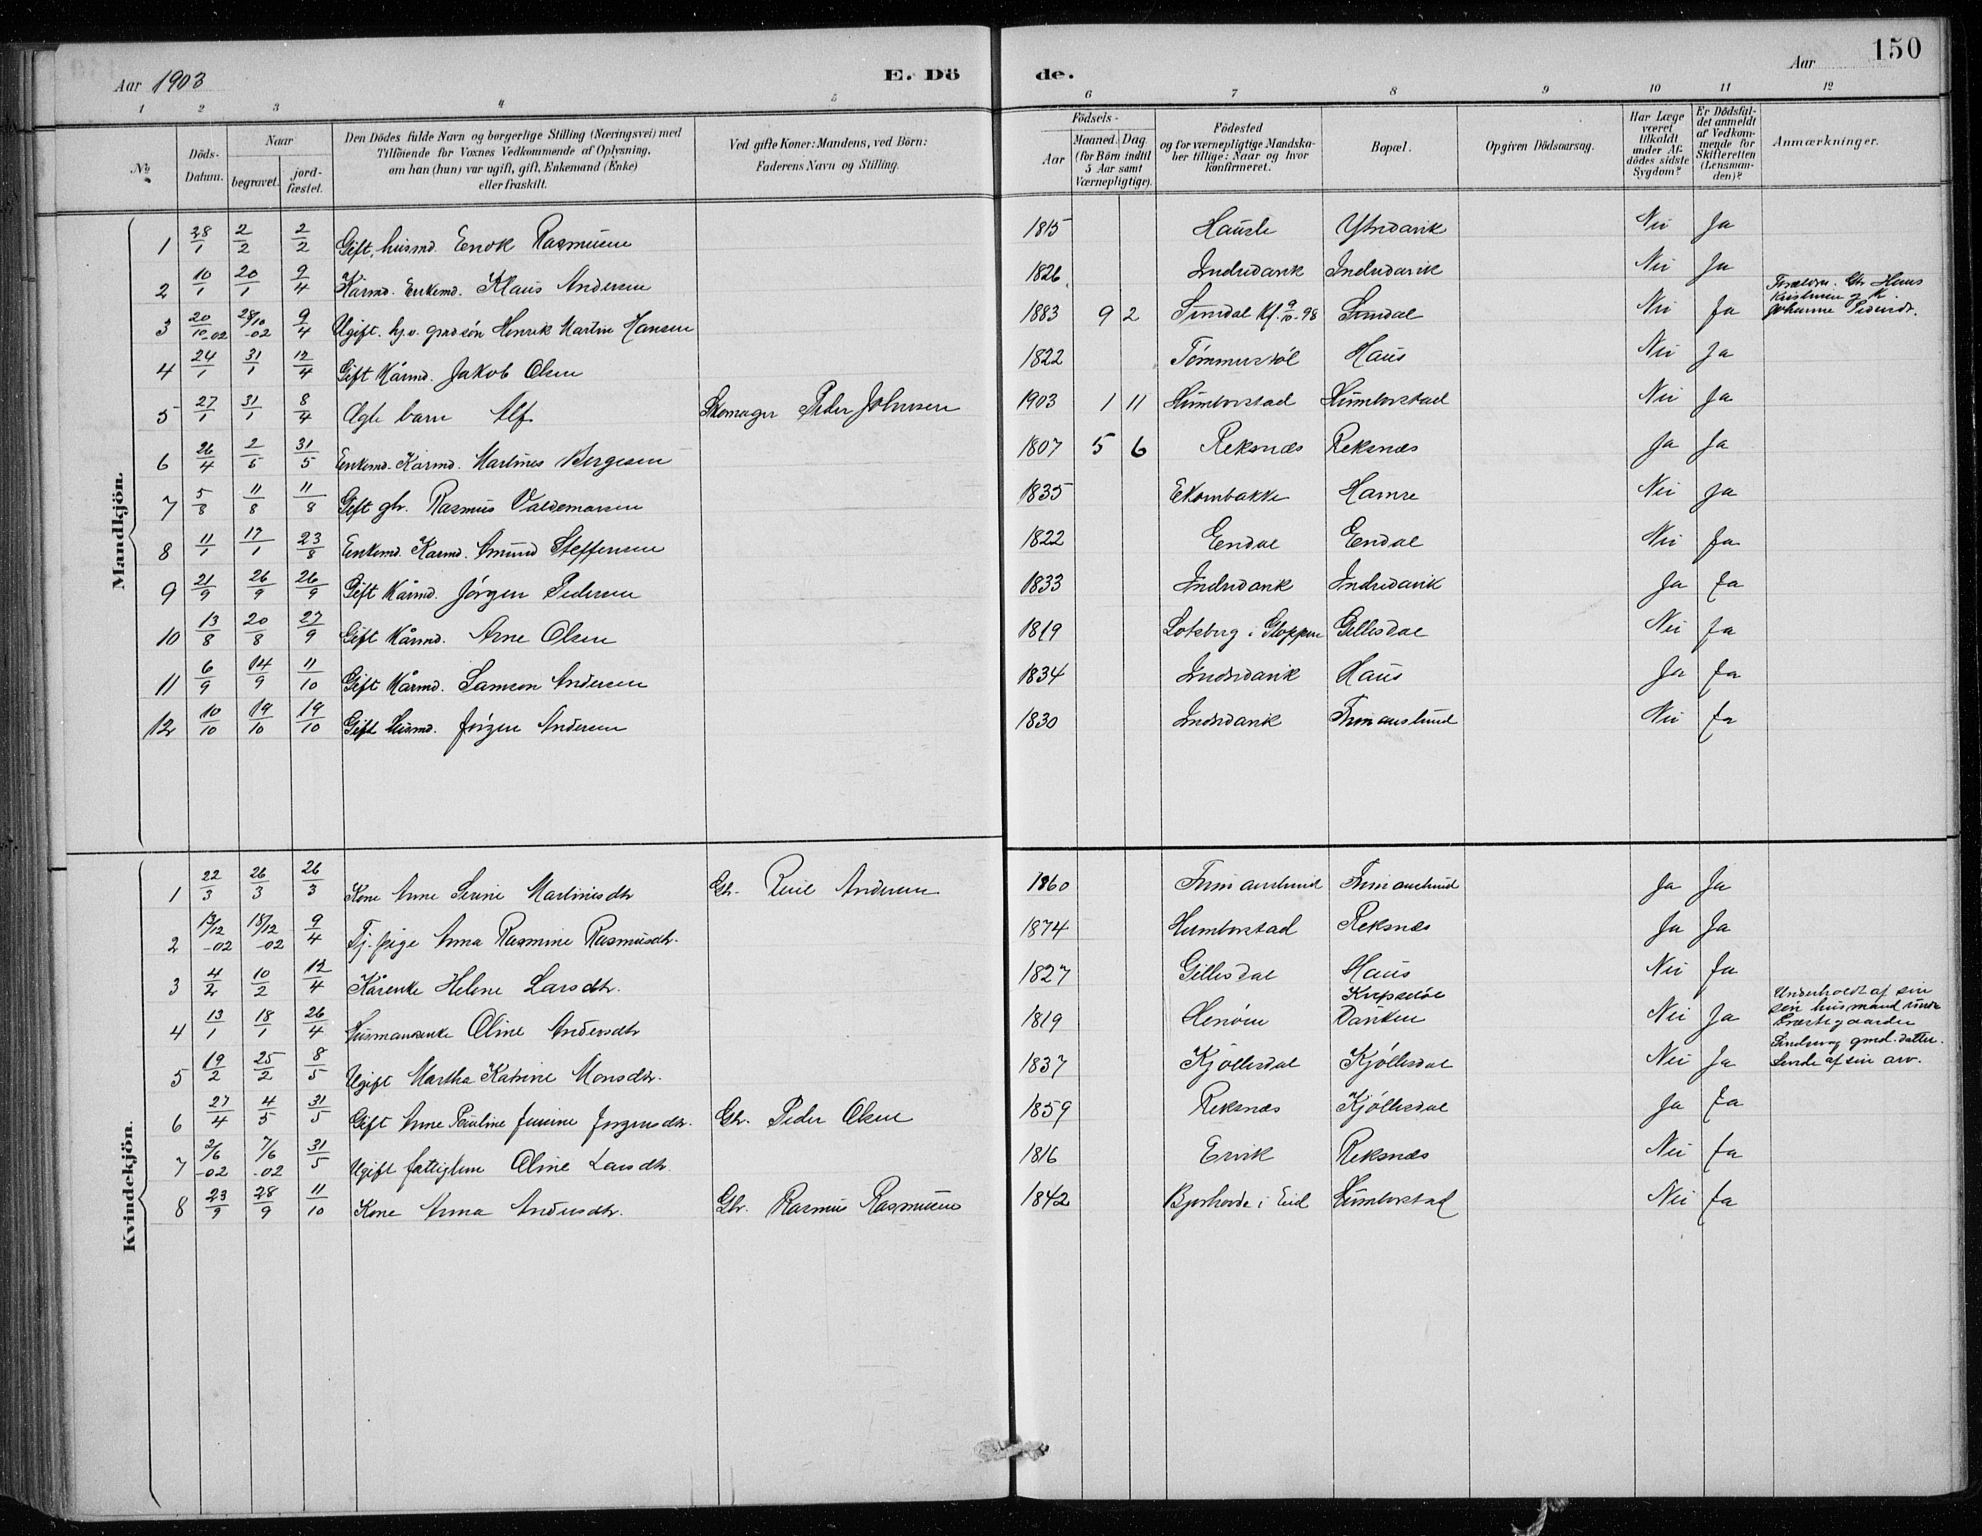 150
Aar 1903
E. Dö de.
Aar
1 2 3 4 5 6 7 8 9 10 11 12
No
Döds-Datum.
Naar begravet. jord-fæstet.
Den Dödes fulde Navn og borgerlige Stilling (Næringsvei) med Tilföiende for Voxnes Vedkommende af Oplysning, om han (hun) var ugift, gift, Enkemand (Enke) eller fraskilt.
Ved gifte Koner: Mandens, ved Börn: Faderens Navn og Stilling.
Födsels- Aar Maaned Dag (for Börn indtil 5 Aar samt Værnepligtige).
Födested og for værnepligtige Mandska-ber tillige: Naar og hvor konfirmeret.
Bopæl.
Opgiven Dödsaarsag.
Har Læge været tilkaldt under Af-dödes sidste Sygdom?
Er Dödsfal-det anmeldt af Vedkom-mende for Skifteretten (Lensman-den)?
Anmærkninger.
Mandkjön.
1 28/1 2/2 2/2 Gift, husmd. Enok Rasmusen 1815 Hausle Ytredavik Nei Ja
2 10/1 20/1 9/4 Kårmd. Enkemd. Klaus Andersen 1826 Indredavik Indredavik Nei Ja
3 20/10-02 28/10-02 9/4 Ugift. Henrik Martin Hansen 1883 9 2 Sundal Kf. 9/10-98 Sundal Nei Ja Forældre. Gbr Hans
4 24/1 31/1 12/4 Gift Kårmd. Jakob Olsen 1822 Haus Nei Ja
5 27/1 31/1 8/4 Ægte barn Alf Skomager Peder Johnsen 1903 1 11 Humborstad Humborstad Nei Ja
6 26/4 2/5 31/5 Enkemd. Kårmd. Martines Børgesen 1807 5 6 Reksnæs Reksnæs Ja Ja
7 5/8 11/8 11/8 Gift gbr. Rasmus Valdemarsen 1835 Ekornbakke Hamre Nei Ja
8 11/1 17/1 23/8 Enkemd. Kårmd. Amund Steffensen 1822 Endal Endal Nei Ja
9 21/9 26/9 26/9 Gift Kårmd. Jørgen Pedersen 1833 Indredavik Indredavik Ja Ja
10 13/8 20/8 27/9 Gift Kårmd. Arne Olsen 1819 Lotsberg i Gloppen Gillesdal Nei Ja
11 6/9 14/9 11/10 Gift Kårmd. Samson Andersen 1834 Indredavik Haus Ja Ja
12 10/10 19/10 19/10 Gift Husmd. Jørgen Andersen 1830 Indredavik Frimanslund Nei Ja
Kvindekjön.
1 22/3 26/3 26/3 Kone Anne Serine Martinisdtr Gbr. Andersen 1860 Frimanslund Frimanslund Ja Ja
2 13/12-02 18/12-02 9/4 Tj. pige Anna Rasmine Rasmusdtr. 1874 Humborstad Reksnæs Ja Ja
3 4/2 10/2 12/4 Kårenke Helene Larsdtr. 1827 Gillesdal Haus Nei Ja
4 13/1 18/1 26/4 Husmansenke Oline Andersdtr 1819 Nei Ja Underholdt af sin
sin husmand under
Præstegaarden
5 19/2 25/2 8/5 Ugift Martha Katrine Monsdtr. 1837 Kjøllesdal Kjøllesdal Nei Ja gmd. datter.
Levde af sin arv.
6 27/4 4/5 31/5 Gift Anne Pauline Jørgensdtr. Gbr. Peder Olsen 1859 Reksnæs Kjøllesdal Ja Ja
7 2/6-02 7/6-02 31/5 Ugift fattiglem Oline Larsdtr. 1816 Ervik Reksnæs Nei Ja
8 23/9 28/9 11/10 Kone Anna Andersdtr. Gbr. Rasmus Rasmusen 1842 i Eid Humborstad Nei Ja